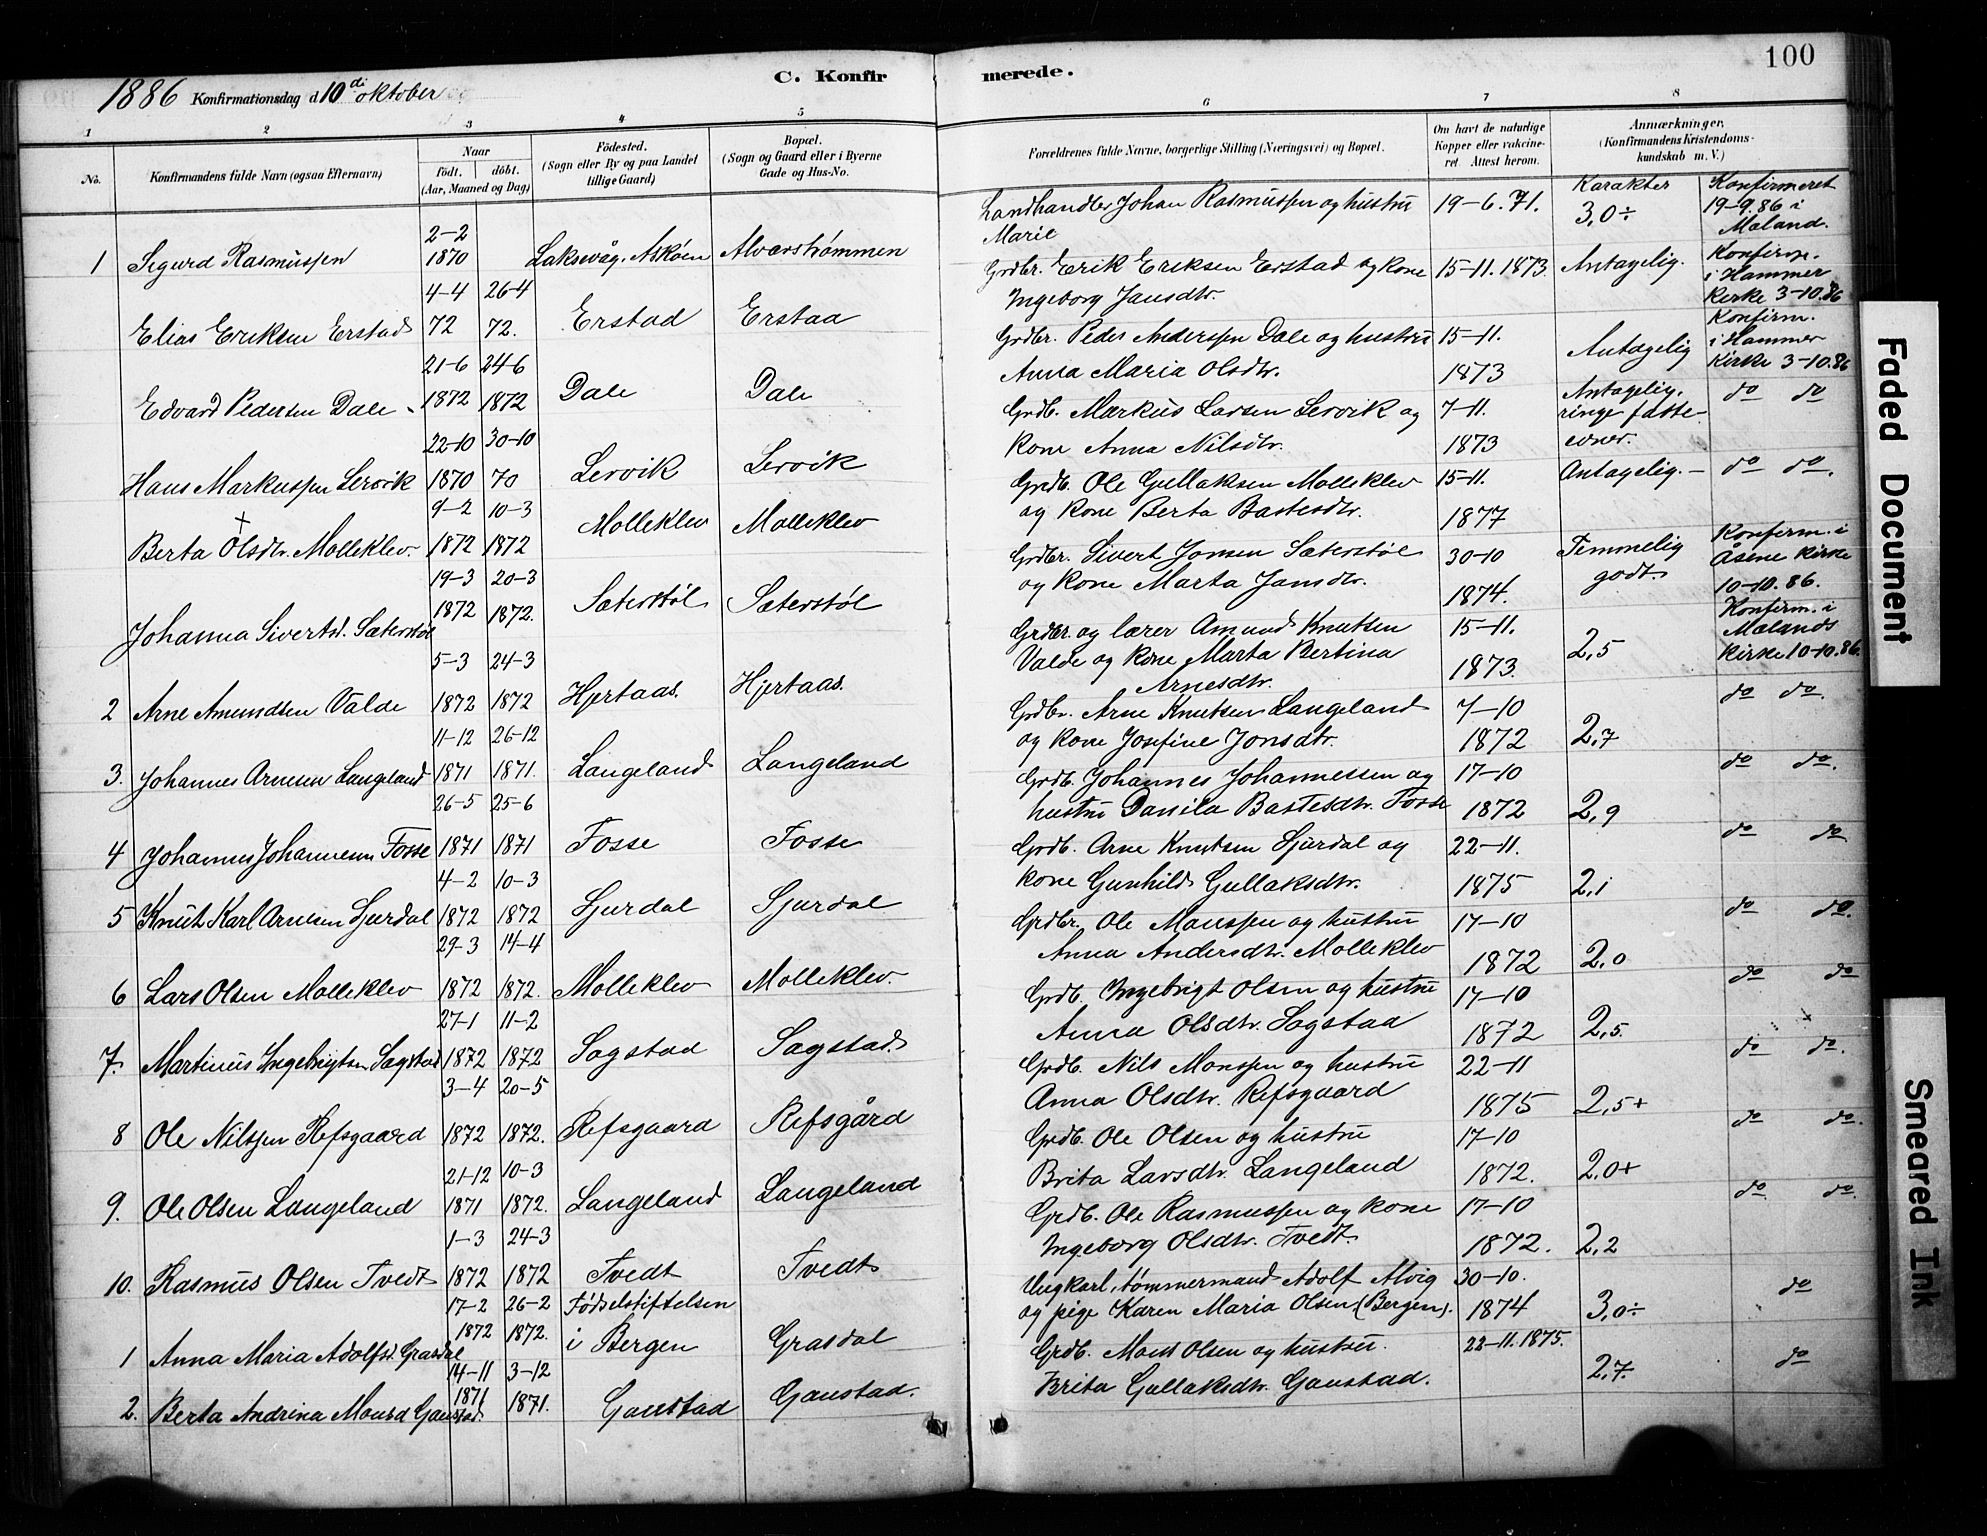 1886 Konfirmationsdag d. 10de oktober
C. Konfirmerede.
100
1 2 3 4 5 6 7 8
No.
Konfirmandens fulde Navn (ogsaa Efternavn)
Naar
født. døbt.
(Aar, Maaned og Dag)
Fødested.
(Sogn eller By og paa Landet
tillige Gaard)
Bopæl.
(Sogn og Gaard eller i Byerne
Gade og Hus-No.
Forældrenes fulde Navne, borgerlige Stilling (Næringsvei) og Bopæl.
Om havt de naturlige
Kopper eller vakcine-
ret Attest herom.
Anmærkninger,
(Konfirmandens Kristendoms-
kundskab m. V.)
1 Sigurd Rasmussen 2-2 1870 Laksevåg. Askøen Alverstrømmen
Landhandler Johan Rasmussen og hustru
Marie
19-6.71. Karakter 3,0÷
Konfirmeret
19-9.86 i
Mæland.
Elias Eriksen Erstad 4-4 72 26-4 72. Erstad Erstad
Grdbr. Erik Eriksen Erstad og kone
Ingeborg Jansdtr.
15-11.1873 Antagelig.
Konfirm.
i Hammer
Kirke 3-10.86
Edvard Pedersen Dale 21-6 1872 24-6 1872 Dale Dale
Grdbr. Peder Anderssen Dale og hustru
Anna Maria Olsdtr.
15-11.
1873
Antagelig
Konfirm.
i Hammer
Kirke 3-10.86
Hans Markussen Lervik 22-10 1870 30-10 70 Lervik Lervik
Grdb. Markus Larsen Lervik og
kone Anna Nilsdtr.
7-11.
1873
Antagelig.
ringe fatte-
evner.
do do
Berta Olsdtr. Molleklev. 9-2 1872 10-3 1872 Molleklev Molleklev
Grdb. Ole Gullaksen Molleklev
og kone Berta Bastesdtr.
15-11.
1877
Antagelig.-
do do.
Johanna Sivertsd. Sæterstøl 19-3 1872 20-3 1872. Sæterstøl Sæterstøl
Grdbr. Sivert Jonsen Sæterstøl
og kone Marta Jansdtr.
30-10
1874.
Temmelig
godt.
Konfirm. i
Åsene kirke
10-10.86.
2 Arne Amundsen Valde 5-3 1872 24-3 1872 Hjertaas. Hjertaas.
Grdbr. og lærer Amund Knutsen
Valde og kone Marta Bertina
Arnesdtr.
15-11.
1873.
2,5
Konfirm. i
Mælands
kirke 10-10.86.
3. Johannes Arnesen Langeland 11-12 1871 26-12 1871. Langeland Langeland
Grdbr. Arne Knutsen Langeland
og kone Josefine Jonsdtr.
7-10
1872
2,7
do do.
4 Johannes Johannesen Fosse 26-5 1871 25-6 1871 Fosse Fosse
Grdb. Johannes Johannessen og
hustru Danila Bastesdtr. Fosse
17-10
1872
2,9
do do.
5 Knut Karl Arnesen Sjurdal 4-2 1872 10-3 1872 Sjurdal Sjurdal
Grdb. Arne Knutsen Sjurdal og
kone Gunhild Gullaksdtr.
22-11.
1875
2,1
do do
6 Lars Olsen Molleklev 29-3 1872 14-4 1872. Molleklev Molleklev.
Grdbr. Ole Monssen og hustru
Anna Andersdtr. Molleklev
17-10
1872
2,0
do do.
7. Martinus Ingebrigtsen Sagstad 27-1 1872 11-2 1872 Sagstad Sagstad
Grdb. Ingebrigt Olsen og hustru
Anna Olsdtr. Sagstad
17-10
1872
2,5.
do do
8 Ole Nilssen Refsgaard 3-4 1872 20-5 1872. Refsgaard Refsgård
Grdb. Nils Monssen og hustru
Anna Olsdtr. Refsgaard
22-11
1875
2,5+
do do.
9. Ole Olsen Langeland 21-12 1871 10-3 1872. Langeland Langeland
Grdb. Ole Olsen og hustru
Brita Larsdtr. Langeland
17-10
1872.
2,0+
do do.
10. Rasmus Olsen Tvedt 1-3 1872 24-3 1872 Tvedt Tvedt
Grdb. Ole Rasmussen og kone
Ingeborg Olsdtr. Tvedt.
17-10
1872.
2,2
do do.
1 Anna Maria Adolfsd. Grasdal 17-2 1872 26-2 1872. Fødselstiftelsen
i Bergen Grasdal
Ungkarl, tømmermand Adolf Alvig
og pige Karen Maria Olsen (Bergen).
30-10.
1874
3,0÷
do
2. Berta Andrina Monsd Gaustad 14-11 1871 3-12 1871. Gaustad Gaustad.
Grdb. Mons Olsen og hustru.
Brita Gullaksdtr. Gaustad.
22-11.1875.
2,7.
do
Faded Document
Smeared Ink